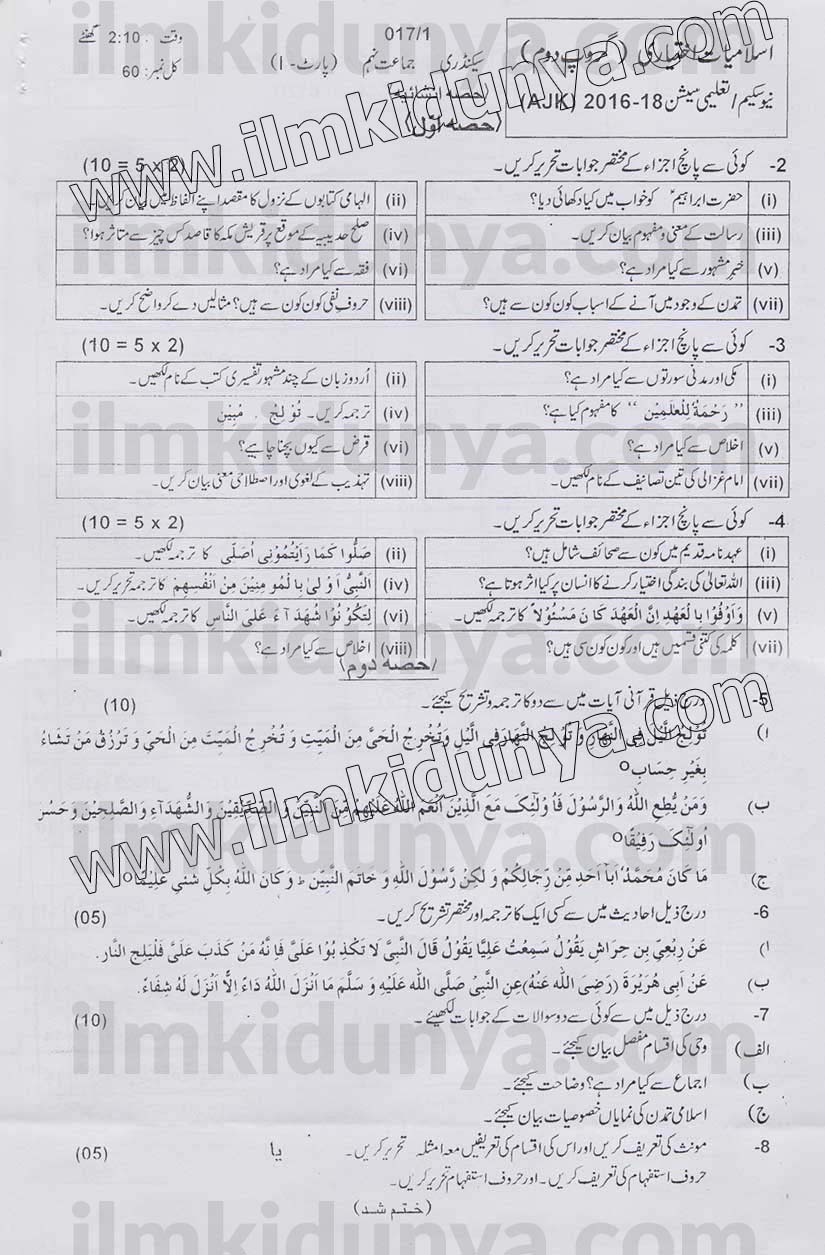 اسلامیات اختیاری (گروپ دوم)
سیکنڈری جماعت نہم (پارٹ-I)
017/1
وقت . 2:10 گھنٹے
نیو سکیم/تعلیمی سیشن 18-2016 (AJK)
(حصہ انشائیہ)
کل نمبر: 60
(حصہ اوّل)
www.ilmkidunya.com
2- کوئی سے پانچ اجزاء کے مختصر جوابات تحریر کریں۔ (10 = 5 x 2)
(i) حضرت ابراہیمؑ کو خواب میں کیا دکھائی دیا؟
(ii) الہامی کتابوں کے نزول کا مقصد اپنے الفاظ میں بیان کریں۔
(iii) رسالت کے معنی و مفہوم بیان کریں۔
(iv) صلح حدیبیہ کے موقع پر قریش مکہ کا قاصد کس چیز سے متاثر ہوا؟
(v) خبرِ مشہور سے کیا مراد ہے؟
(vi) فقہ سے کیا مراد ہے؟
(vii) تمدن کے وجود میں آنے کے اسباب کون کون سے ہیں؟
(viii) حروفِ نفی کون کون سے ہیں؟ مثالیں دے کر واضح کریں۔
3- کوئی سے پانچ اجزاء کے مختصر جوابات تحریر کریں۔ (10 = 5 x 2)
(i) مکی اور مدنی سورتوں سے کیا مراد ہے؟
(ii) اُردو زبان کے چند مشہور تفسیری کتب کے نام لکھیں۔
(iii) ’’ رَحْمَةً لِّلْعٰلَمِیْن ‘‘ کا مفہوم کیا ہے؟
(iv) ترجمہ کریں۔ تُوْلِجُ ، مُبِیْنٌ
(v) اخلاص سے کیا مراد ہے؟
(vi) قرض سے کیوں بچنا چاہیے؟
(vii) امام غزالی کی تین تصانیف کے نام لکھیں۔
(viii) تہذیب کے لغوی اور اصطلاحی معنی بیان کریں۔
4- کوئی سے پانچ اجزاء کے مختصر جوابات تحریر کریں۔ (10 = 5 x 2)
(i) عہد نامہ قدیم میں کون سے صحائف شامل ہیں؟
(ii) صَلُّوا کَمَا رَاَیْتُمُوْنِی اُصَلِّی کا ترجمہ لکھیں۔
(iii) اللہ تعالیٰ کی بندگی اختیار کرنے کا انسان پر کیا اثر ہوتا ہے؟
(iv) اَلنَّبِیُّ اَوْلٰی بِالْمُومِنِیْنَ مِنْ اَنْفُسِهِمْ کا ترجمہ تحریر کریں۔
(v) وَاَوْفُوْا بِالْعَهْدِ اِنَّ الْعَهْدَ کَانَ مَسْئُوْلًا کا ترجمہ لکھیں۔
(vi) لِتَکُوْنُوْا شُهَدَآءَ عَلَی النَّاسِ کا ترجمہ لکھیں۔
(vii) کلمہ کی کتنی قسمیں ہیں اور کون کون سی ہیں؟
(viii) اخلاص سے کیا مراد ہے؟
(حصہ دوم)
5- درج ذیل قرآنی آیات میں سے دو کا ترجمہ و تشریح کیجئے۔ (10)
ا) تُوْلِجُ الَّیْلَ فِی النَّهَارِ وَ تُوْلِجُ النَّهَارَ فِی الَّیْلِ وَتُخْرِجُ الْحَیَّ مِنَ الْمَیِّتِ وَ تُخْرِجُ الْمَیِّتَ مِنَ الْحَیِّ وَ تَرْزُقُ مَنْ تَشَاءُ
بِغَیْرِ حِسَابٍ o
ب) وَمَنْ یُّطِعِ اللّٰهَ وَالرَّسُوْلَ فَاُولٰٓئِکَ مَعَ الَّذِیْنَ اَنْعَمَ اللّٰهُ عَلَیْهِمْ مِّنَ النَّبِیّٖنَ وَ الصِّدِّیْقِیْنَ وَالشُّهَدَآءِ وَالصّٰلِحِیْنَ وَحَسُنَ
اُولٰٓئِکَ رَفِیْقًا o
ج) مَا کَانَ مُحَمَّدٌ اَبَآ اَحَدٍ مِّنْ رِّجَالِکُمْ وَ لٰکِنْ رَّسُوْلَ اللّٰهِ وَ خَاتَمَ النَّبِیّٖنَ ط وَکَانَ اللّٰهُ بِکُلِّ شَیْیٍٔ عَلِیْمًا o
6- درج ذیل احادیث میں سے کسی ایک کا ترجمہ اور مختصر تشریح کریں۔ (05)
ا) عَنْ رِبْعِیِّ بن حِرَاشٍ یَقُوْلُ سَمِعْتُ عَلِیًّا یَقُوْلُ قَالَ النَّبِیُّ لَا تَکْذِبُوْا عَلَیَّ فَاِنَّهُ مَنْ کَذَبَ عَلَیَّ فَلْیَلِجِ النَّار.
ب) عَنْ اَبِی هُرَیْرَةَ (رَضِیَ اللّٰه عَنْهُ) عَنِ النَّبِیِّ صَلَّی اللّٰه عَلَیْهِ وَ سَلَّمَ مَا اَنْزَلَ اللّٰهُ دَاءً اِلَّا اَنْزَلَ لَهُ شِفَاءً.
7- درج ذیل میں سے کوئی سے دو سوالات کے جوابات لکھیئے۔ (10)
الف) وحی کی اقسام مفصل بیان کیجئے۔
ب) اجماع سے کیا مراد ہے؟ وضاحت کیجئے۔
ج) اسلامی تمدن کی نمایاں خصوصیات بیان کیجئے۔
8- مونث کی تعریف کریں اور اس کی اقسام کی تعریفیں معہ امثلہ تحریر کریں۔ یا (05)
حروف استفہام کی تعریف کریں۔ اور حروف استفہام تحریر کریں۔
(ختم شد)
www.ilmkidunya.com
ilmkidunya.com